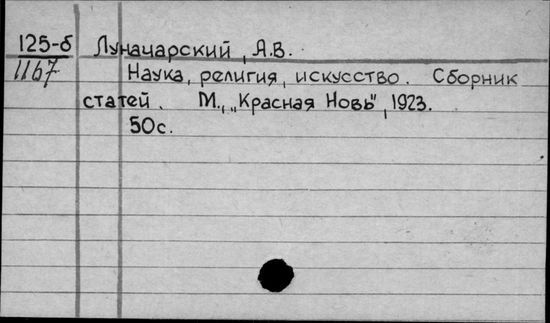 125-б Луначарский, А.В.
1167 Наука, религия, искусство. Сборник
статей. М., „Красная Новь", 1923.
50с.